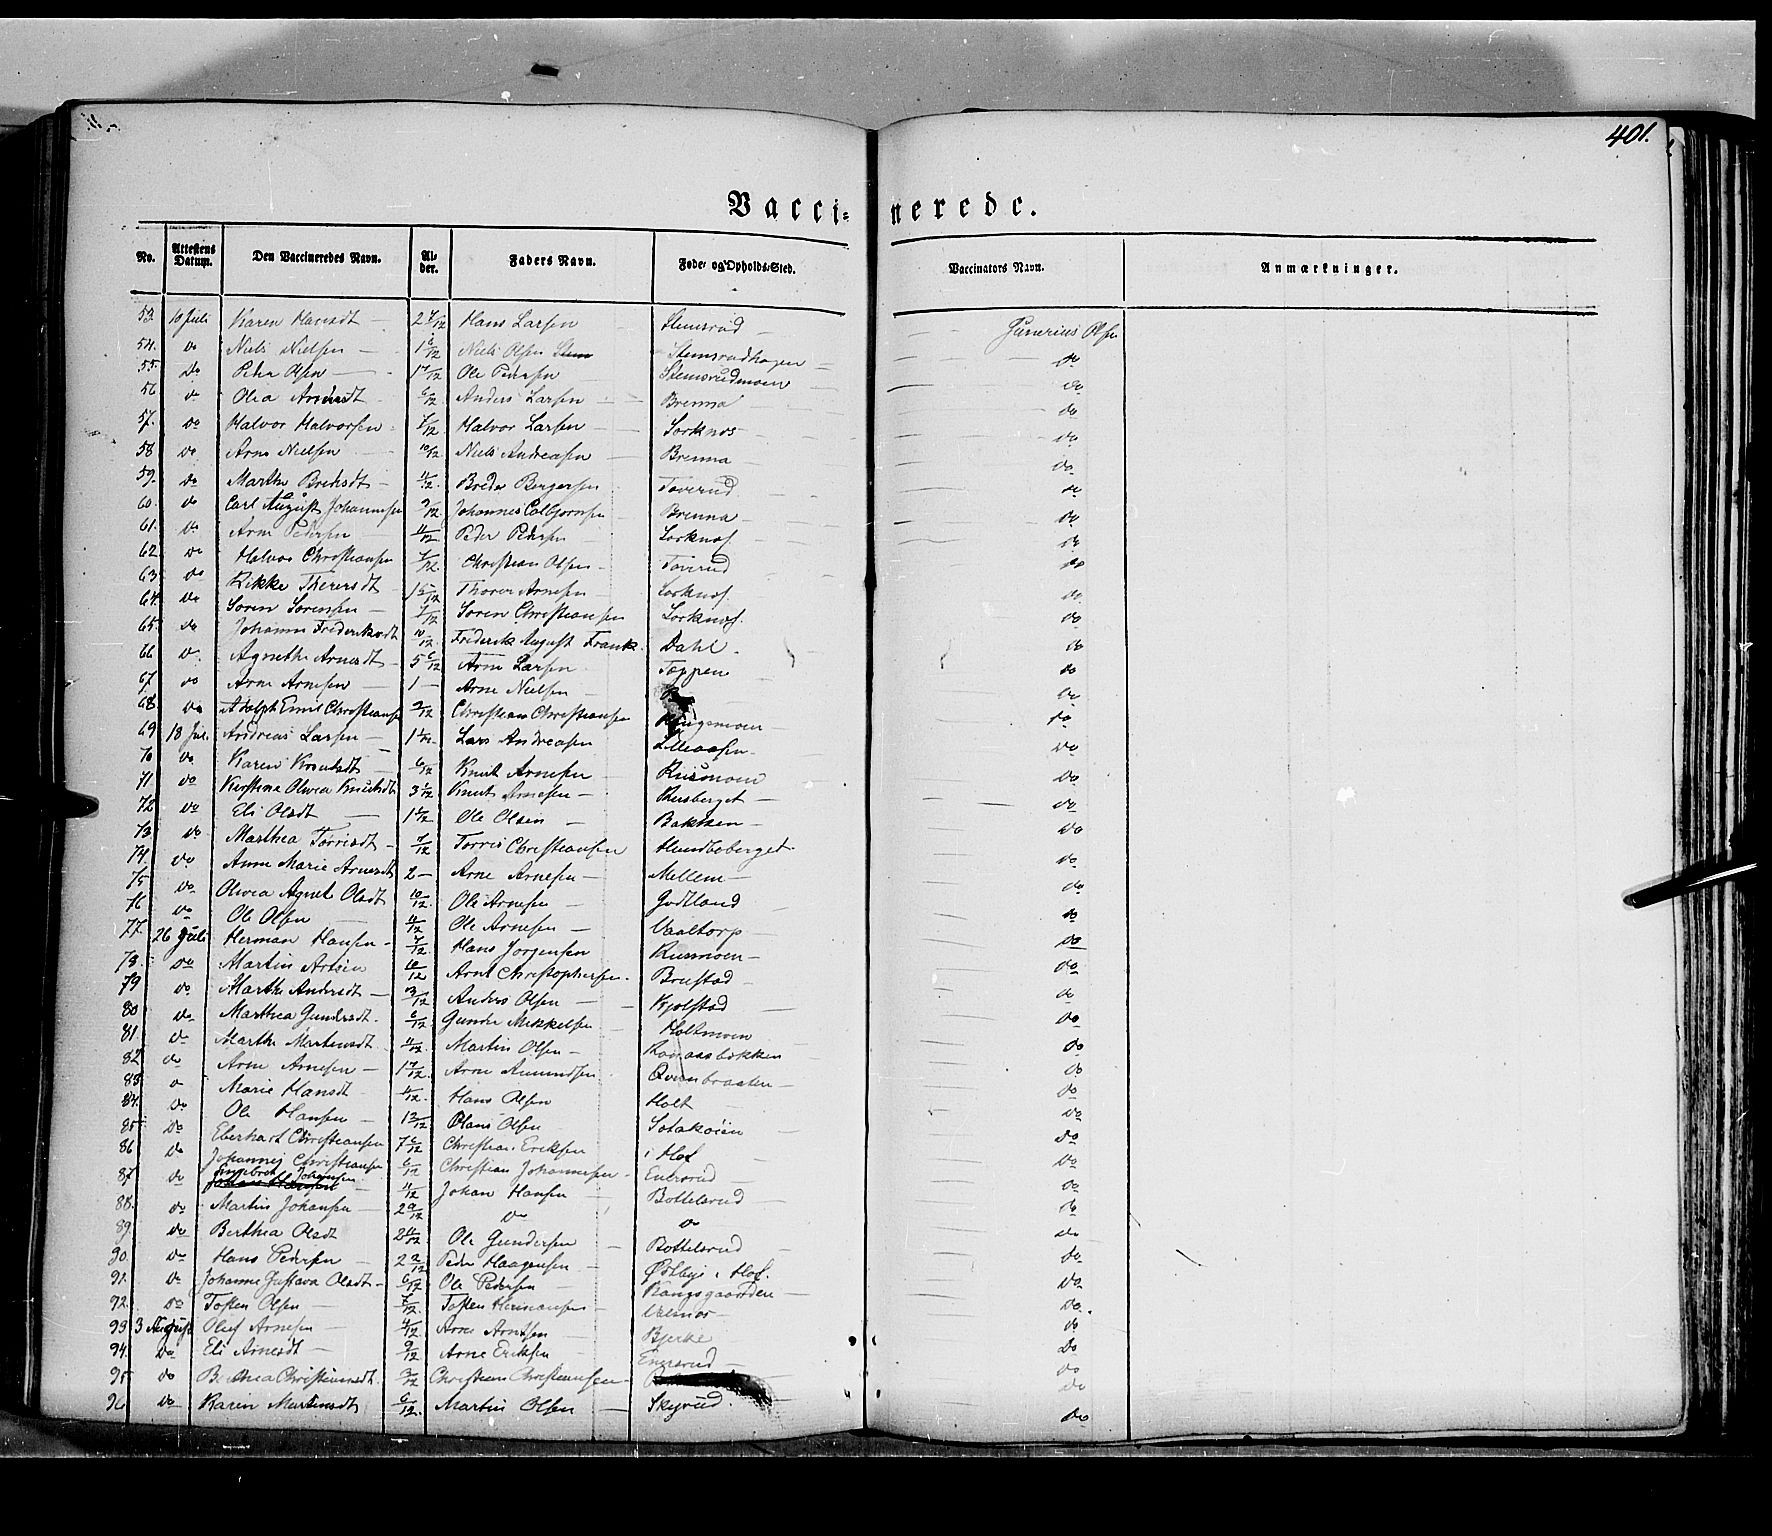 401.
Vaccinerede.
No. Attestens Datum. Den Vaccineredes Navn. Alder. Faders Navn. Føde- og Opholds-Sted. Vaccinators Navn. Anmærkninger.
53. 10 Juli Karen Hansdt 2 Hans Larsen Stemsrud Gunerius Olsen
54. do Niels Nielsen 1 Niels Olsen Stemsrudhagen do
55. do Peder Olsen Ole Pedersen Stemsrudmoen do
56 do Olea Andersdt 6/12 Anders Larsen Brenna do
57. do Halvor Halvorsen Halvor Larsen Sorknæs do
58 do Arne Nielsen 10/12 Niels Andreasen Brenna do
59. do Marthe Bredesdt 11/12 Breder Bergersen Toverud do
60. do Carl August Johannesen 9/12 Johannes Brenna do
61. do Arne Pedersen 11/12 Peder Pedersen Sorknæs do
62 do Halvor Christiansen Christian Olsen Toverud do
63 do Rikke Thorersdt Thorer Arnesen Sorknæs do
64. do Soren Sorensen Soren Christiansen Sorknæs. do
65. do Johanne Frederiksdt 10/12 Frederik August Frank Dahl do
66 do Agnethe Arnesdt 5 6/12 Arne Larsen Toppen do
67. do Arne Arnesen 1 Arne Nielsen do
68. do Adolph Emil Christiansen 9/12 Christian Christiansen do
69 18 Jul. Andreas Larsen 1 Lars Andreasen do
70 do Karen Knudsdt 6/12 Knut Arnesen Rusmoen do
71 do Kirstine Olivia Knudsdt 3 Knut Arnesen Rusberget do
72 do Eli Olsdt 1 Ole Olsen Bakken do
73 do Marthea Torrisdt Torris Christiansen Hundboberget do
74. do Anne Marie Arnesdt 2 Arne Arnesen Mellem do
75 do Olivia Agnet Olsdt 10/12 Ole Arnesen Godtland do
76 do Ole Olsen 11/12 Ole Arnesen Vaaltorp do
77. 26 Juli Herman Hansen 7/12 Hans Jorgensen Rusmoen do
78. do Martin 10/12 Arnt Christophersen Brustad do
79 do Marthe Andersdt Anders Olsen Kjolstad do
80 do Marthea Gundersdt 6/12 Gunder Mikkelsen Holtmoen do
81 do Marthe Martinsdt 11/12 Martin Olsen do
82 do Arne Arnesen Arne Amundsen Qvernbraaten do
83 do Marie Hansdt Hans Olsen Holt do
84. do Ole Hansen 1 Hans Olsen do
85 do Eberhart Christiansen 7 6/12 Christian Eriksen i Hof do
86 do Johannes Christiansen 6/12 Christian Johannesen Enersrud do
87 do Engebret Johansen 11/12 Johan Hansen Bottelsrud do
88. do Martin Johansen 2 9/12 do do do
89 do Berthea Olsdt 2 Ole Gundersen Bottelsrud do
90 do Hans Pedersen 2 9/12 Peder Haagensen Østbye i Hof. do
91. do Johanne Gustava Olsdt 6/12 Ole Pedersen Kongsgaarden do
92. do Tosten Olsen 7/12 Tosten Hermansen do.
93 3 August Oluf Arnesen 11/12 Arne Arntsen Bjerke do
94. do Eli Arnesdt 9/12 Arne Eriksen Enersrud do
95 do Berthea Christiansdt 9/12 Christian Christiansen do
96 do Karen Martinsdt 6/12 Martin Olsen Skyrud do